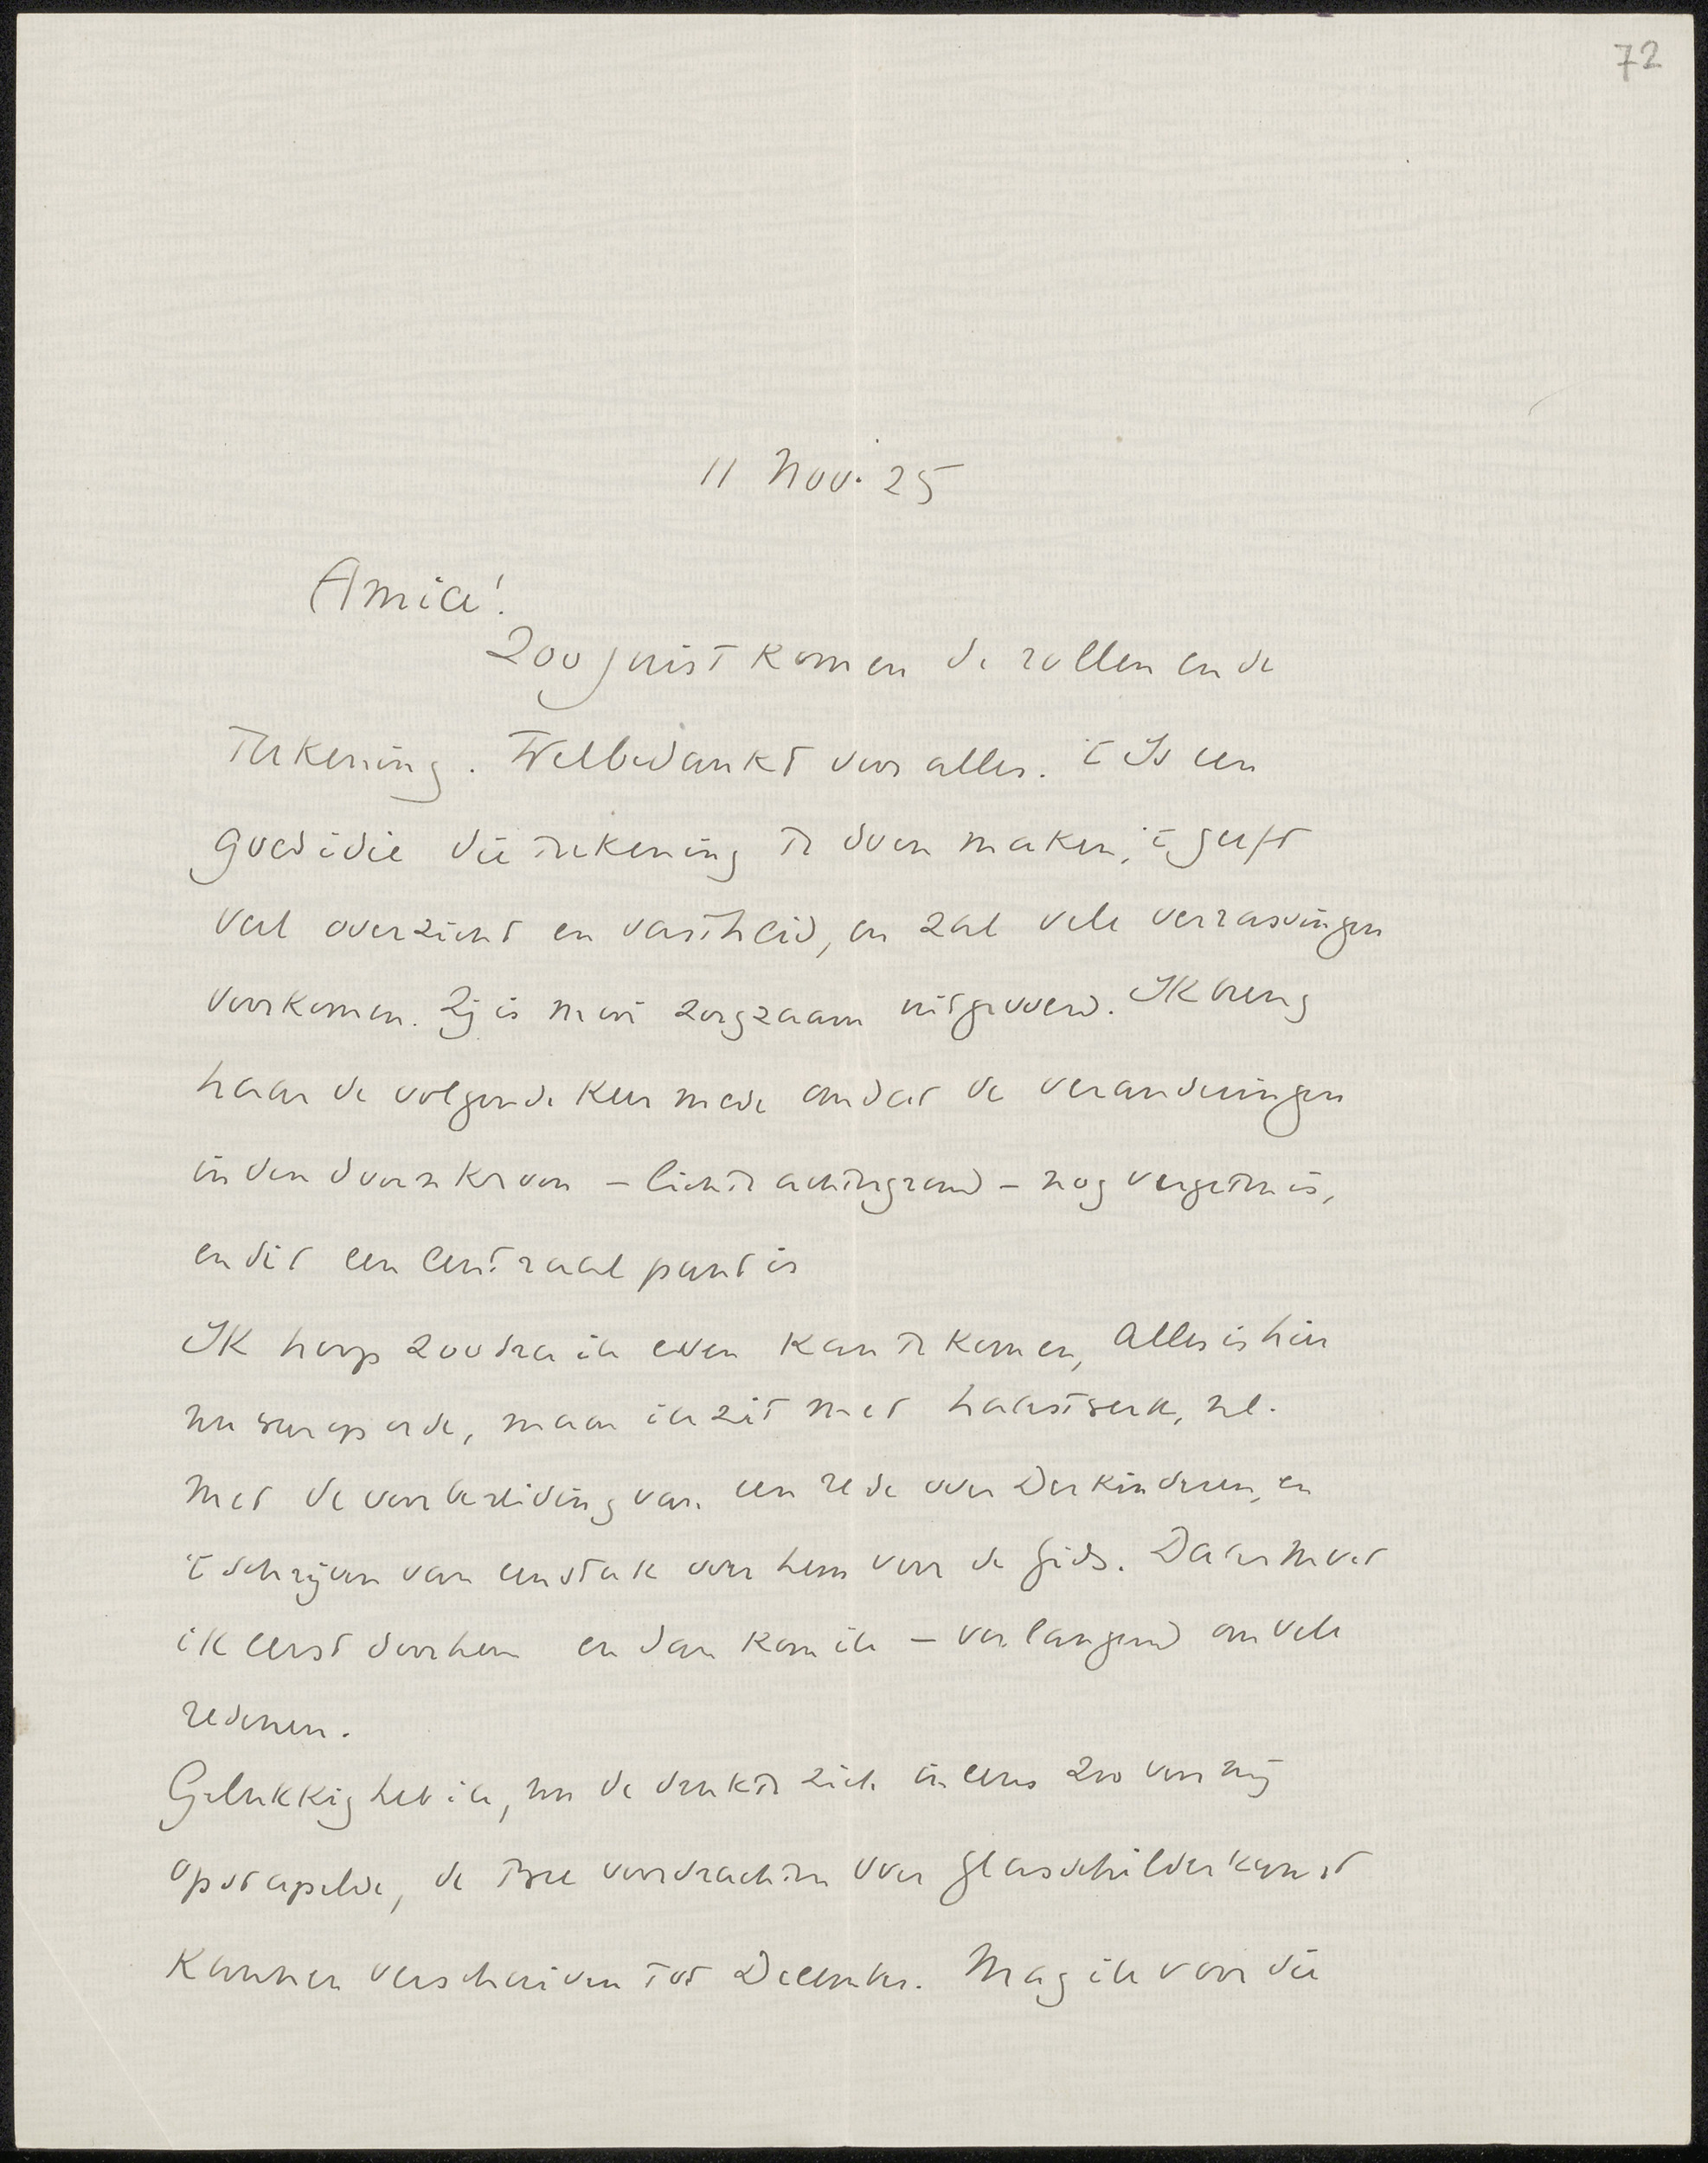 72
11 Nov. 25
Amice!
Zoo juist komen de rollen en de
teekening. Wel bedankt voor alles. 't Is een
goed idée die teekening te doen maken, 't geeft
veel overzicht en vastheid, en zal vele verrassingen
voorkomen. Zij is mooi zorgzaam uitgevoerd. Ik breng
haar de volgende keer mede omdat de veranderingen
in den doornkroon – lichte achtergrond – nog vergeten is,
en dit een centraal punt is
Ik hoop zoodra ik even kan te komen, alles is hier
nu wer op orde, maar ik zit met haastwerk, nl.
met de voorbereiding van een rede over Derkinderen, en
't schrijven van een stuk over hem voor de Gids. Daar moet
ik eerst doorheen en dan kom ik – verlangend om vele
redenen.
Gelukkig heb ik, nu de drukte zich ineens zoo voor mij
opstapelde, de twee voordrachten over glasschilderkunst
kunnen verschuiven tot December. Mag ik voor die